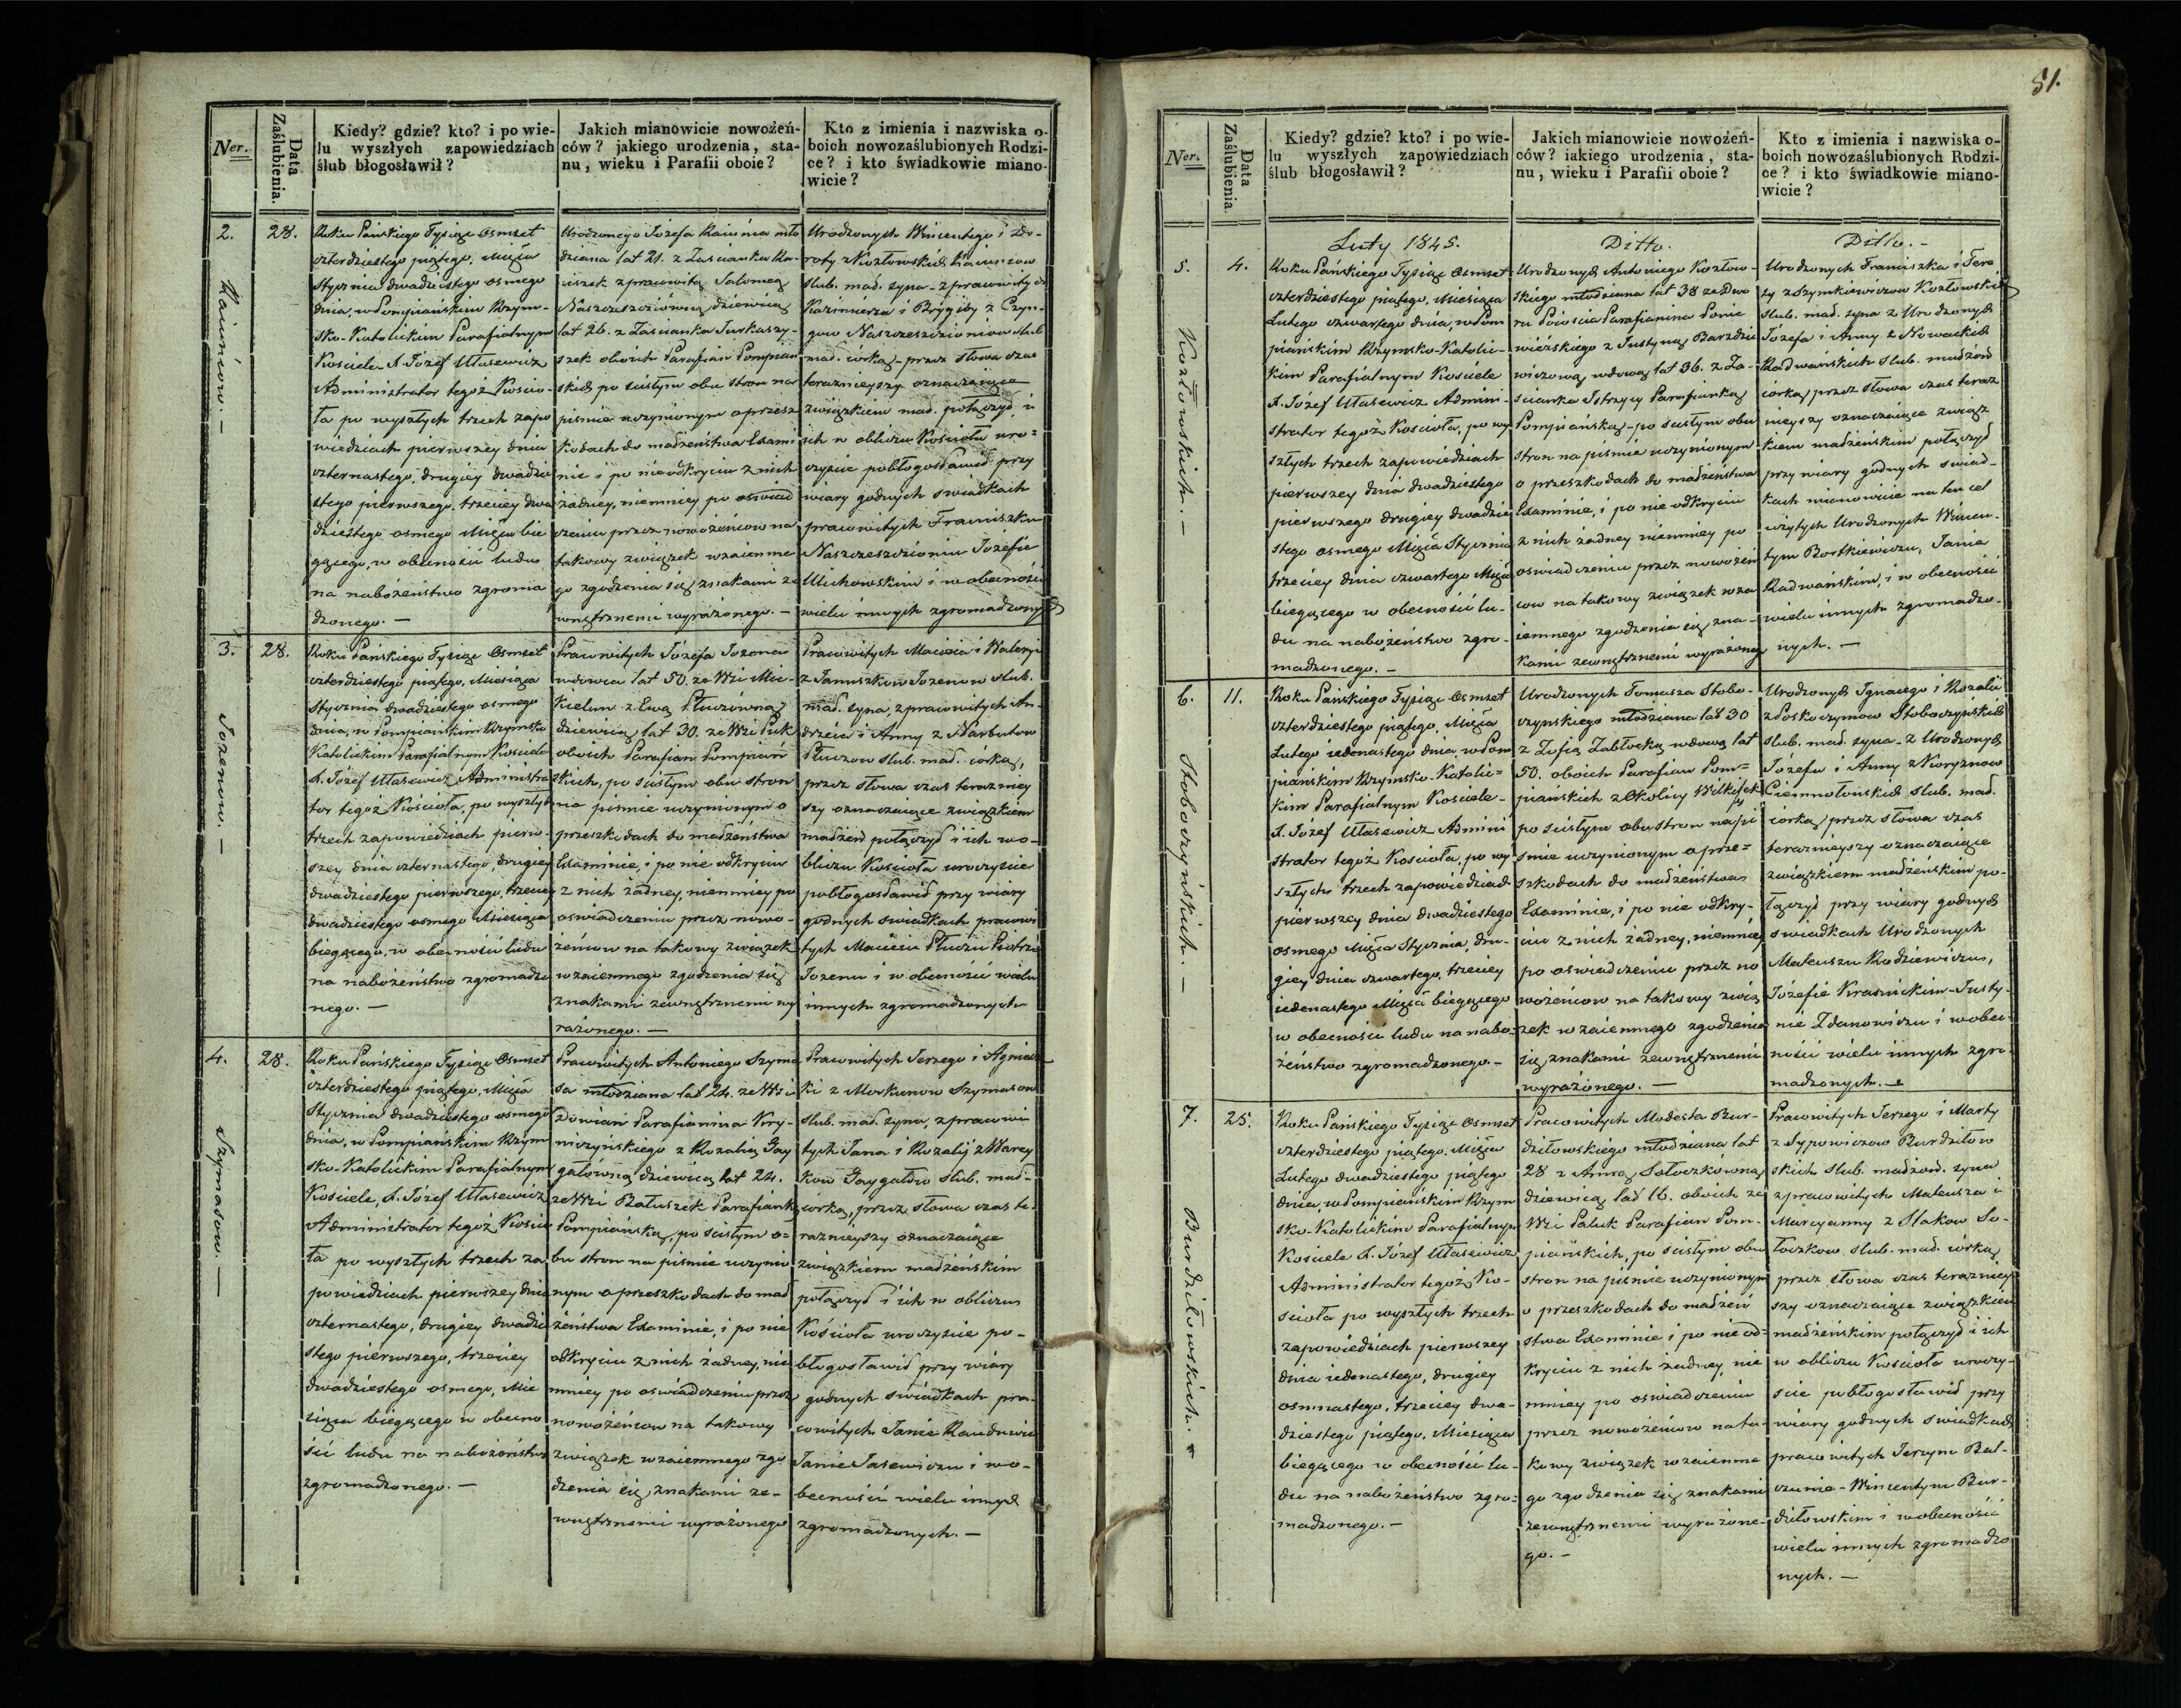 Ner.
Data Zaślubienia.
Kiedy? gdzie? kto? i po wie-
lu wyszłych zapowiedziach
ślub błogosławił?
Jakich mianowicie nowożeń-
ców? jakiego urodzenia, sta-
nu, wieku i Parafii oboie?
Kto z imienia i nazwiska o-
boich nowozaślubionych Rodzi-
ce? i kto świadkowie miano-
wicie?
2.
28.
Roku Pańskiego Tysiąc Osmset
czterdziestego piątego, Miąca
Stycznia dwadziestego osmego
dnia, w Pompiańskim Rzym-
sko-Katolickim Parafialnym
Kościele X. Józef Utasewicz
Administrator tegoż Kościo-
ła po wyszłych trzech zapo
wiedziach pierwszey dnia
czternastego, drugiey dwadzie
stego pierwszego, trzeciey dwa
dziestego osmego Miąca bie
gącego, w obecności ludu
na nabożeństwo zgroma
dzonego. —
Urodzonego Józefa mło
dziana lat 21. z Zaścianku
z prawitą Salomeą
dziewicą
lat 26. z Zaścianka
oboich Parafian Pompiań
skich po ścisłym obu stron na
piśmie uczynionym o przesz
kodach do małżeństwa Exami
nie i po nie odkryciu z nich
żadney, niemniey po oświad
czeniu przez nowożeńcow na
takowy związek wzaiemne
go zgodzenia się znakami ze
wnętrznemi wyrażonego. —
Urodzonych Wincentego i Do-
roty z Kozłowskich
slub. mał. syna - z pracowitych
Kazimierza i Brygidy z Czyn-
gow slub.
mał. córką - przez słowa czas
teraznieyszy oznaczaiące
związkiem mał. połączył, i
ich w obliczu Kościoła uro=
czyście pobłogosławił przy
wiary godnych swiadkach
pracowitych Franciszku
Józefie
i w obecności
wielu innych zgromadzonych
3.
28.
Jozenow. —
Roku Pańskiego Tysiąc Osmset
czterdziestego piątego, Miesiąca
Stycznia dwadziestego osmego
dnia, w Pompiańskim Rzymsko
Katolickim Parafialnym Kościele
X. Józef Utasewicz Administra
tor tegoż Kościoła, po wyszłych
trzech zapowiedziach pierw-
szey dnia czternastego, drugiey
dwadziestego pierwszego, trzeciey
dwadziestego osmego Miesiąca
biegącego, w obecności ludu
na nabożeństwo zgromadzo
nego. —
Pracowitych Józefa Jozena
wdowca lat 50. ze Wsi Mi-
kielun z Ewą Płuczówną
dziewicą lat 30. ze Wsi Puk
oboich Parafian Pompiań
skich, po ścisłym obu stron
na piśmie uczynionym o
przeszkodach do małżeństwa
Examinie, i po nie odkryciu
z nich żadney, niemniey po
oświadczeniu przez nowo-
żeńcow na takowy związek
wzaiemnego zgodzenia się
znakami zewnętrznemi wy
rażonego. —
Pracowitych Macieia i Waleryi
z Januszkow Jozenow slub.
mał. syna, z pracowitych An-
drzeia i Anny z Narbutow
Płuczow slub. mał. córką,
przez słowa czas teraz niey
szy oznaczaiące związkiem
małżeń połączył i ich w o-
bliczu Kościoła uroczyście
pobłogosławił przy wiary
godnych swiadkach pracowi
tych Macieiu Płuczu Piotrze
Jozenu i w obecności wielu
innych zgromadzonych
4.
28.
Szymasow. —
Roku Pańskiego Tysiąc Osmset
czterdziestego piątego, Miąca
Stycznia dwadziestego osmego
dnia, w Pompiańskim Rzym
sko-Katolickim Parafialnym
Kościele, X. Józef Utasewicz
Administrator tegoż Koscio
ła po wyszłych trzech za
powiedziach pierwszey dnia
czternastego, drugiey dwadzie
stego pierwszego, trzeciey
dwadziestego osmego, Mie
siąca biegącego w obecno
ści ludu na nabożeństwo
zgromadzonego. —
Pracowitych Antoniego Szyma
sa młodziana lat 24. ze Wsi
Dowian Parafianina Kry-
niczyńskiego z Rozalią Gay
gałówną dziewicą lat 24.
ze Wsi Bałuszek Parafianką
Pompiańską, po ścisłym o=
bu stron na piśmie uczynio
nym o przeszkodach do mał
żeństwa Examinie, i po nie
odkryciu z nich żadney, nie
mniey po oświadczeniu przez
nowożeńcow na takowy
związek wzaiemnego zgo
dzenia się znakami ze-
wnętrznemi wyrażonego
Pracowitych Jerzego i Agniesz
ki z Morkunow Szymasow
slub. mał. syna, z pracowi
tych Jana i Rozalij z Warey
kow Gaygałow slub. mał-
córką, przez słowa czas te-
raznieyszy oznaczaiące
związkiem małżeńskim
połączył i ich w obliczu
Kościoła uroczyście po-
błogosławił przy wiary
godnych swiadkach pra-
cowitych Janie
Janie Jasewiczu i w o-
becności wielu innych
zgromadzonych. —
51.
Ner.
Data Zaślubienia.
Kiedy? gdzie? kto? i po wie-
lu wyszłych zapowiedziach
ślub błogosławił?
Jakich mianowicie nowożeń-
ców? iakiego urodzenia, sta-
nu, wieku i Parafii oboie?
Kto z imienia i nazwiska o-
boich nowozaślubionych Rodzi-
ce? i kto świadkowie miano-
wicie?
Luty 1845.
Ditto.
Ditto. -
5.
4.
Kozłowskich. —
Roku Pańskiego Tysiąc Osmset
czterdziestego piątego, Miesiąca
Lutego czwartego dnia, w Pom
piańskim Rzymsko-Katolic-
kim Parafialnym Kosciele
X. Józef Utasewicz Admini-
strator tegoż Kościoła, po wy
szłych trzech zapowiedziach
pierwszey dnia dwadziestego
pierwszego drugiey dwadzie
stego osmego Miąca Stycznia
trzeciey dnia czwartego Miąca
biegącego w obecności lu-
du na nabożeństwo zgro-
madzonego. —
Urodzonych Antoniego Kozłow-
skiego młodziana lat 38 ze Dwo
ru Poiościa Parafianina Ponie
wiézskiego z Justyną Barzdzie
wiczową wdową lat 36. z Za-
ścianka Istrycy Parafianką
Pompiańską - po ścisłym obu
stron na piśmie uczynionym
o przeszkodach do małżeństwa
Examinie, i po nie odkryciu
z nich żadney niemniey po
oświadczeniu przez nowożeń
cow na takowy związek wza
iemnego zgodzenia się zna-
kami zewnętrznemi wyrażoneg
Urodzonych Franciszka i Tere
sy z Szymkiewiczow Kozłowskich
slub. mał. syna z Urodzonych
Józefa i Anny z Nowackich
Radwańskich slub. małżeń
córką przez słowa czas teraz
nieyszy oznaczaiące związ
kiem małżeńskim połączył
przy wiary godnych swiad-
kach mianowicie na ten cel
użytych Urodzonych Wincen-
tym Bortkiewiczu, Janie
Radwańskim, i w obecności
wielu innych zgromadzo-
nych. —
6.
11.
Stoboczyńskich. —
Roku Pańskiego Tysiąc Osmset
czterdziestego piątego, Miąca
Lutego iedenastego dnia w Pom
piańskim Rzymsko-Katolic=
kim Parafialnym Kościele-
X. Józef Utasewicz Admini
strator tegoż Kościoła, po wy
szłych trzech zapowiedziach
pierwszey dnia dwadziestego
osmego Miąca Stycznia, dru-
giey dnia czwartego, trzeciey
iedenastego Miąca biegącego
w obecności ludu na nabo-
żeństwo zgromadzonego. -
Urodzonych Tomasza Stobo-
czynskiego młodziana lat 30
z Zofią Zabłocką wdową lat
50. oboich Parafian Pom=
piańskich z Okolicy
po ścisłym obu stron na pi
śmie uczynionym o prze=
szkodach do małżeństwa
Examinie, i po nie odkry-
ciu z nich żadney, niemniey
po oświadczeniu przez no
wożeńcow na takowy związ
zek wzaiemnego zgodzenia
się znakami zewnętrznemi
wyrażonego. —
Urodzonych Ignacego i Rozalii
z Poskoczymow Stoboczynskich
slub. mał. syna - z Urodzonych
Józefa i Anny z Koryznow
Ciemnołońskich slub. mał.
córką przez słowa czas
teraznieyszy oznaczaiące
związkiem małżeńskim po-
łączył przy wiary godnych
swiadkach Urodzonych
Mateuszu Rodziewiczu,
Józefie Krasnickim - Justy-
nie Zdanowiczu i w obec-
ności wielu innych zgro-
madzonych. —
7.
25.
Burdziłowskich.
Roku Pańskiego Tysiąc Osmset
czterdziestego piątego, Miąca
Lutego dwadziestego piątego
dnia, w Pompiańskim Rzym
sko-Katolickim Parafialnym
Kościele X. Józef Utasewicz
Administrator tegoż Ko-
ścioła po wyszłych trzech
zapowiedziach pierwszey
dnia iedenastego, drugiey
osmnastego, trzeciey dwa-
dziestego piątego, Miesiąca
biegącego w obecności lu-
du na nabożeństwo zgro=
madzonego. —
Pracowitych Modesta Bur-
dziłowskiego młodziana lat
28 z Anną Sołoczkówną
dziewicą lat 16. oboich ze
Wsi Paluk Parafian Pom-
piańskich, po ścisłym obu
stron na piśmie uczynionym
o przeszkodach do małżeń
stwa Examinie i po nie od-
kryciu z nich żadney, nie
mniey po oświadczeniu
przez nowożeńcow na ta-
kowy związek wzaiemne
go zgodzenia się znakami
zewnętrznemi wyrażone-
go. —
Pracowitych Jerzego i Marty
z Sypowiczow Burdziłow
skich slub. małżeń. syna
z pracowitych Mateusza i
Marcyanny z Stakow So-
łoczkow slub. mał. córką
przez słowa czas terazniey
szy oznaczaiące związkiem
małżeńskim połączył i ich
w obliczu Kościoła uroczy-
ście pobłogosławił przy
wiary godnych swiadkach
pracowitych Jerzym Bal-
czunie - Wincentym Bur-
dziłowskim i w obecności
wielu innych zgromadzo
nych. —